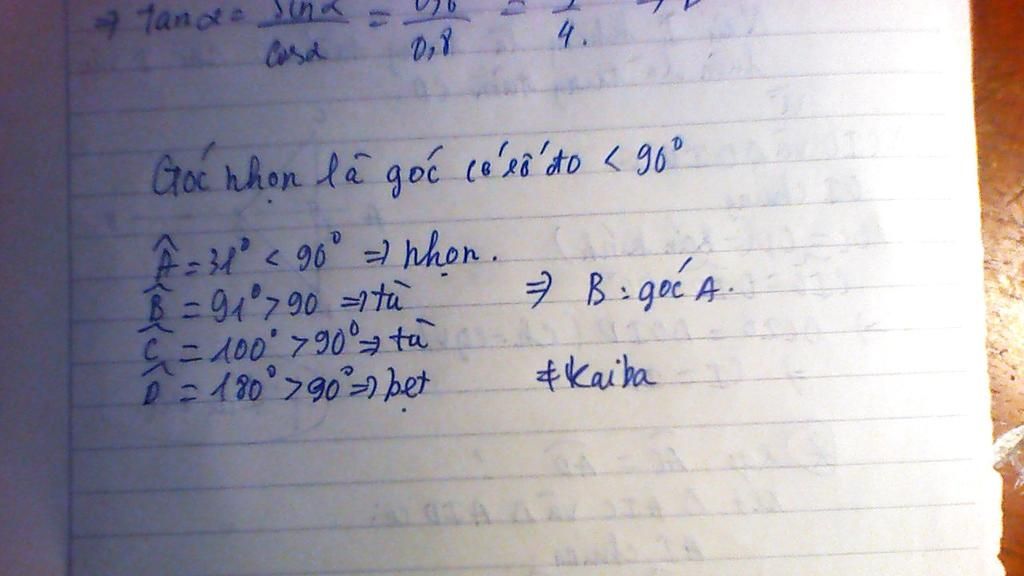 ⇒ tanα = sinα / cosα = 0,6 / 0,8 = 3 / 4.
Góc nhọn là góc có số đo < 90°
Â = 31° < 90° ⇒ nhọn.
B̂ = 91° > 90 ⇒ tù ⇒ B: góc A.
Ĉ = 100° > 90° ⇒ tù
D̂ = 180° > 90° ⇒ bẹt #Kaiba